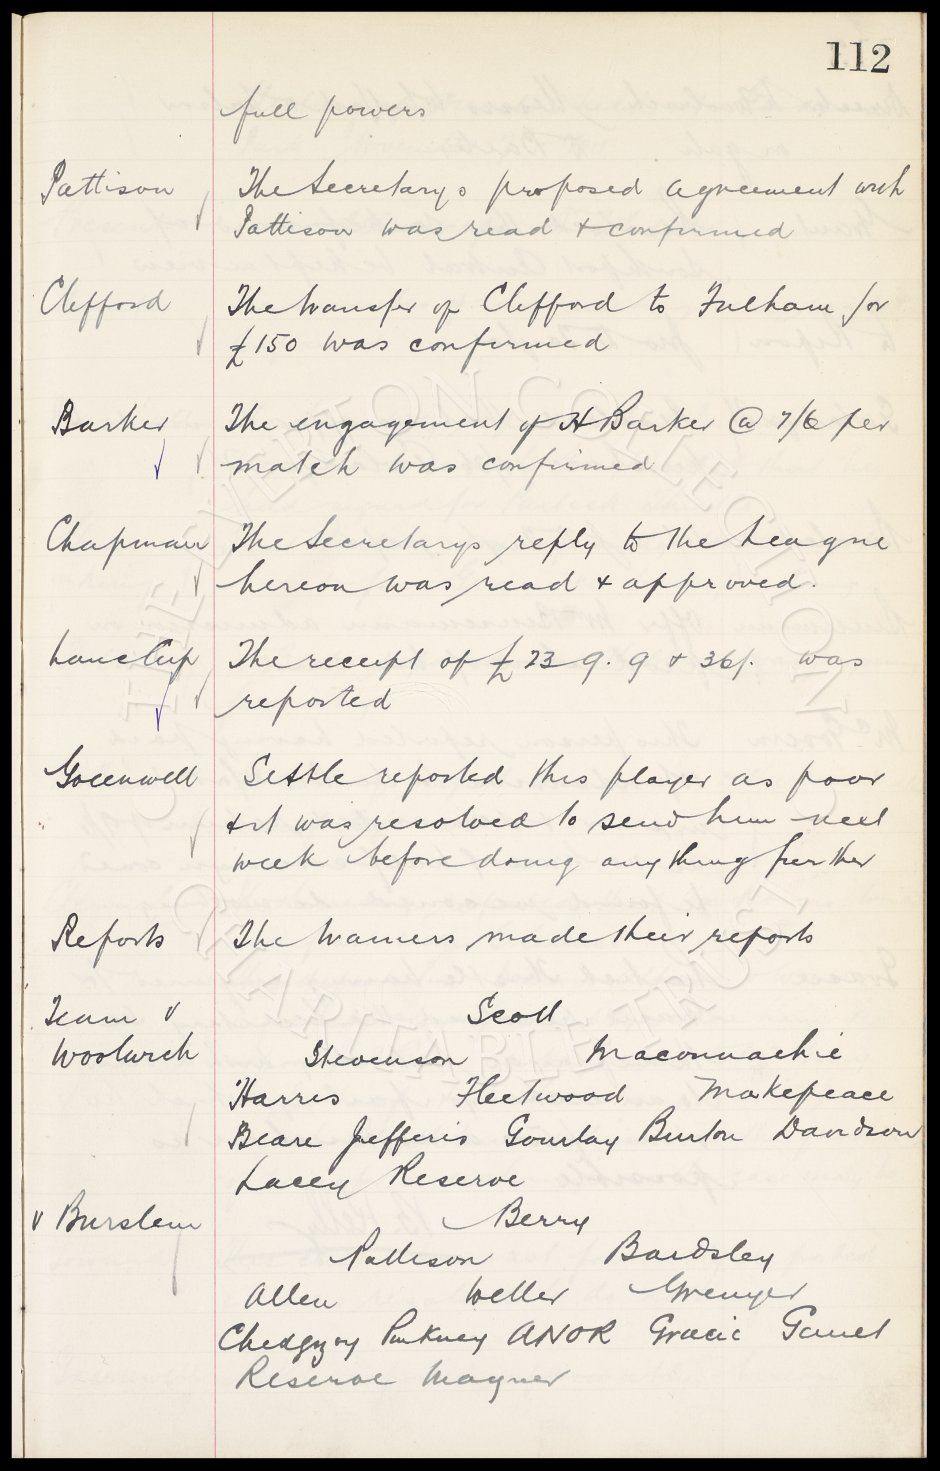 112
full powers
Pattison The Secretarys proposed agreement with
Pattison was read & confirmed
Clifford The transfer of Clifford to Fulham for
£150 was confirmed
Barker The engagement of H Barker @ 7/6 per
match was confirmed
Chapman The Secretarys reply to the League
hereon was read & approved.
Lancs Cup The receipt of £23 9. 9 & 36/. was
reported
Greenwell Settle reported this player as poor
& it was resolved to send him next
week before doing anything further
Reports The trainers made their reports
Team v Scott
Woolwich Stevenson Maconnachie
Harris Fleetwood Makepeace
Beare Jefferis Gourlay Burton Davidson
Lacey Reserve
v Burslem Berry
Pattison Bardsley
Allen Weller Grenyer
Chedgzoy Pinkney ANOR Gracie Garret
Reserve Magner
THE EVERTON COLLECTION
CHARITABLE TRUST